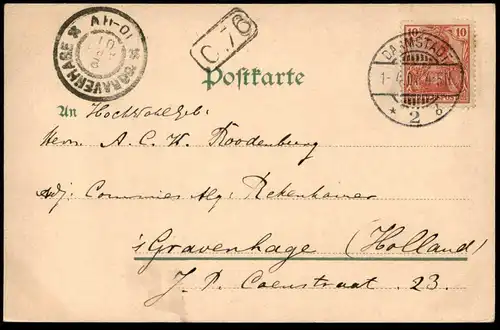 'S GRAVENHAGE 10-11V
2
C.78
10 10
DARMSTADT
* 2 *
Postkarte
An Hochwohlgeb:
Herrn A. C. W. Roodenburg
Adj: Commies Alg: Rekenkamer
's Gravenhage (Holland)
J. P. Coenstraat 23.